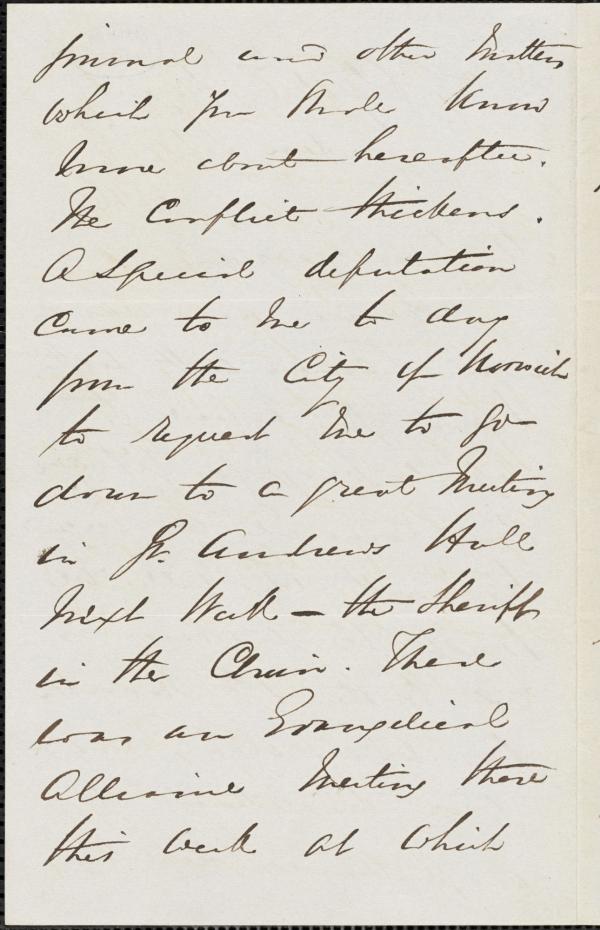 journal and other matters
which you shall know
more about hereafter.
The Conflict thickens.
A Special deputation
came to me to day
from the City of Norwich
to request me to go
down to a great Meeting
in St. Andrews Hall
next Week — the Sheriff
in the Chair. There
was an Evangelical
Alliance Meeting there
this week at which